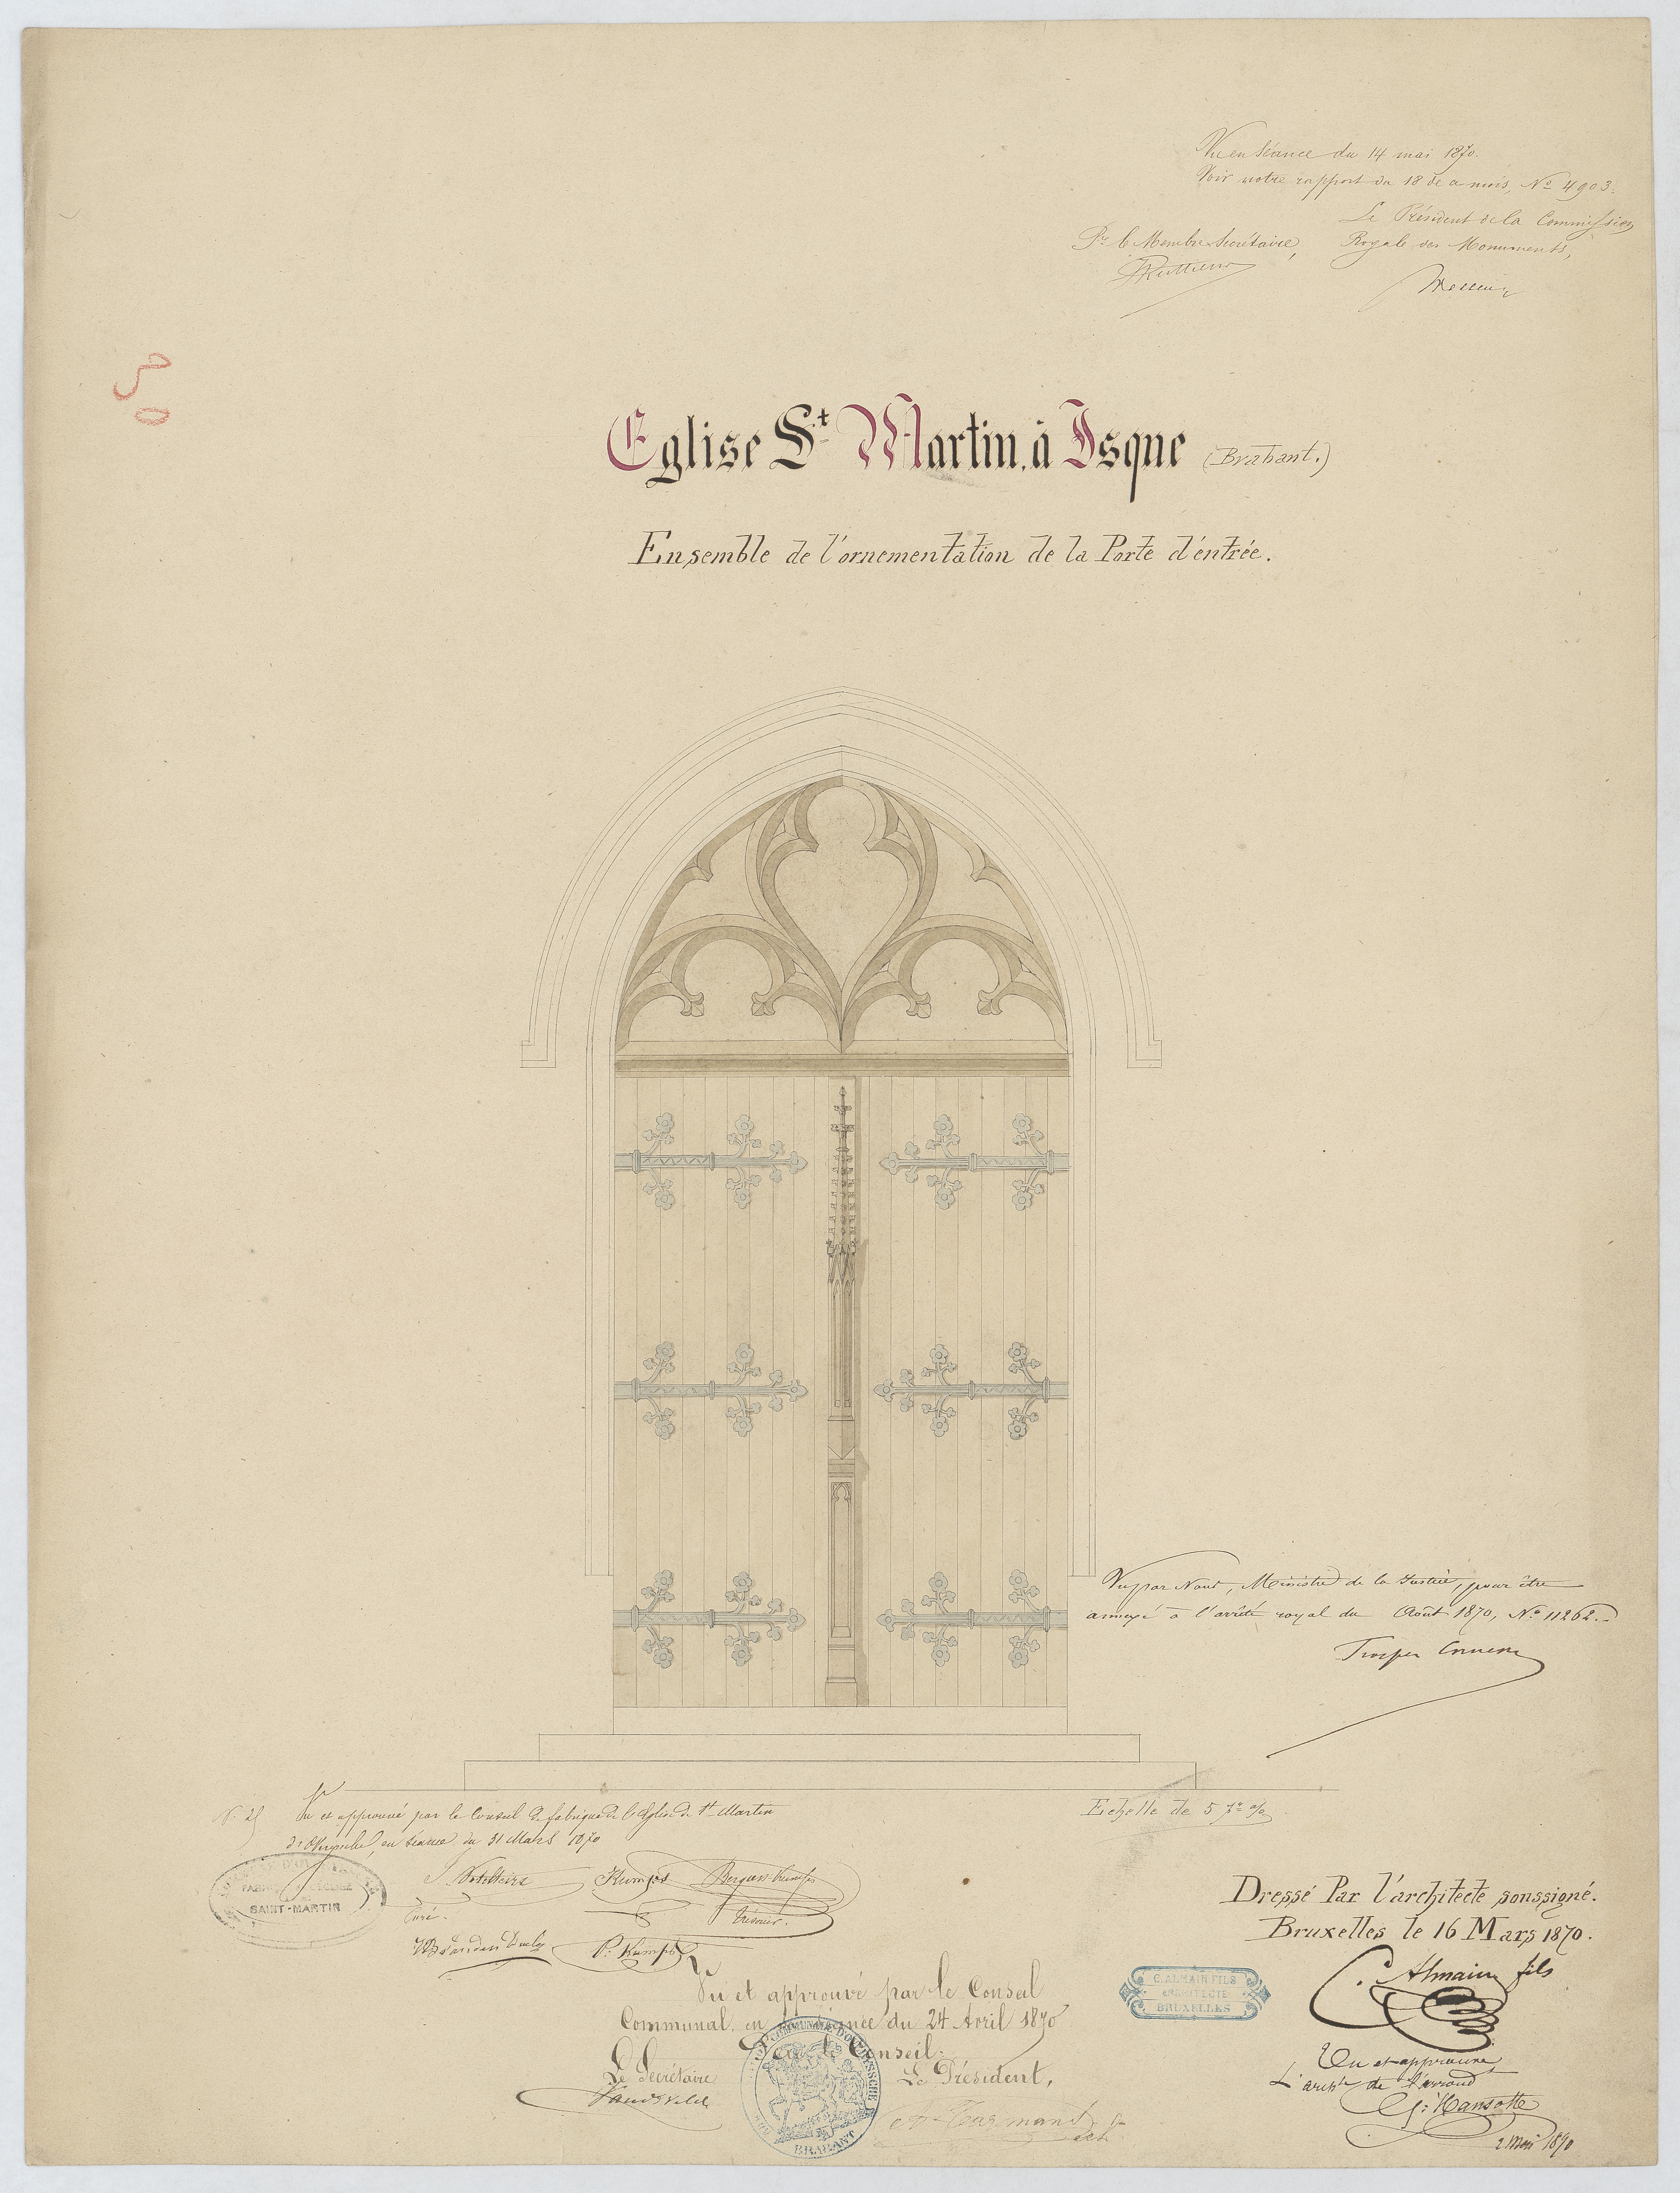 Vu en séance du 14 mai 1870.
Voir notre rapport du 18 de ce mois, Nº 4903.
Le Président de la Commission
Pr. le Membre Secrétaire, Royale des Monuments,
Eglise St Martin, à Isque (Brabant.)
Ensemble de l'ornementation de la Porte d'entrée.
Vu par Nous, Ministre de la Justice, pour être
annexé à l'arrêté royal du Août 1870, Nº 11262.
Echelle de 5 pr %
Vu et approuvé par le Conseil de fabrique de l'église de St Martin
en séance du 31 Mars 1870
SAINT-MARTIN
Curé.
Trésorier.
P. Kumps
Dressé Par l'architecte soussigné.
Bruxelles le 16 Mars 1870.
C. Almain fils
C. ALMAIN FILS
ARCHITECTE
BRUXELLES
Vu et approuvé par le Conseil
Communal en séance du 24 Avril 1870
Par le Conseil:
Le Secrétaire Le Président,
BRABANT
Vu et approuvé
L'archte de l'arrond
G. Hansotte
2 Mai 1870